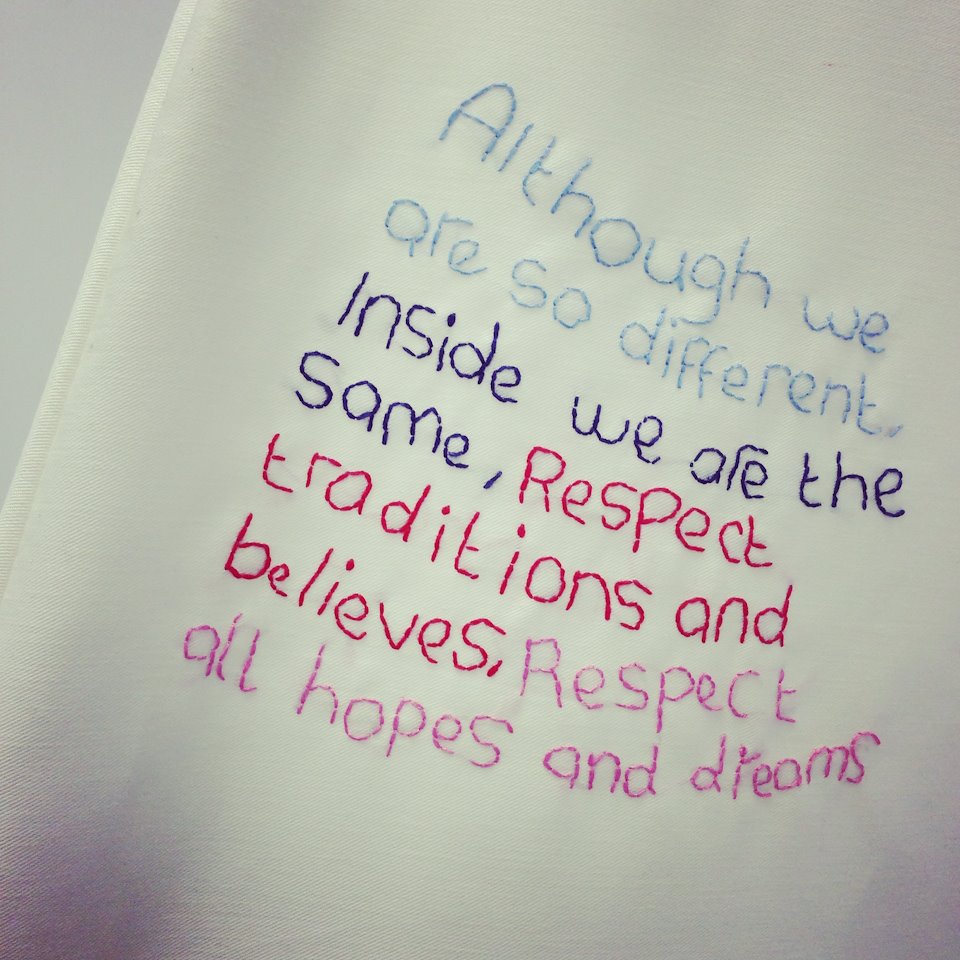 Although we
are so different.
Inside we are the
same, Respect
traditions and
believes, Respect
all hopes and dreams